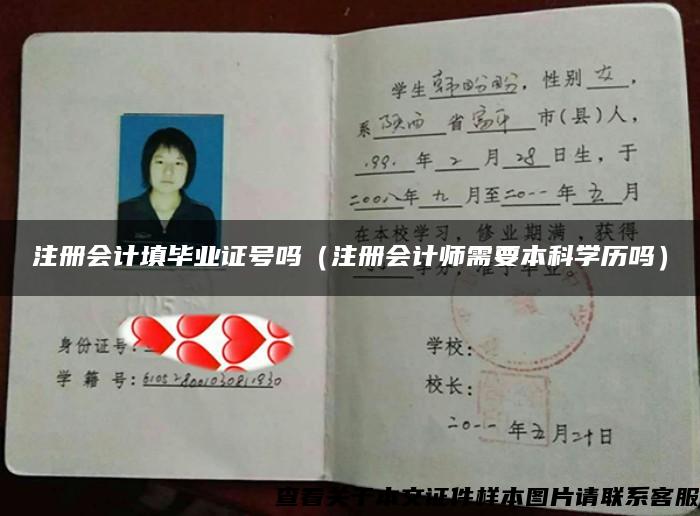 学生韩盼盼，性别女，
系陕西省富平市(县)人，
1991年2月28日生，于
二00八年九月至二0一一年五月
在本校学习，修业期满，获得
学分，准予毕业。
注册会计填毕业证号吗（注册会计师需要本科学历吗）
身份证号：
学籍号：
学校：
校长：
二0一一年五月二十日
查看关于本文证件样本图片请联系客服